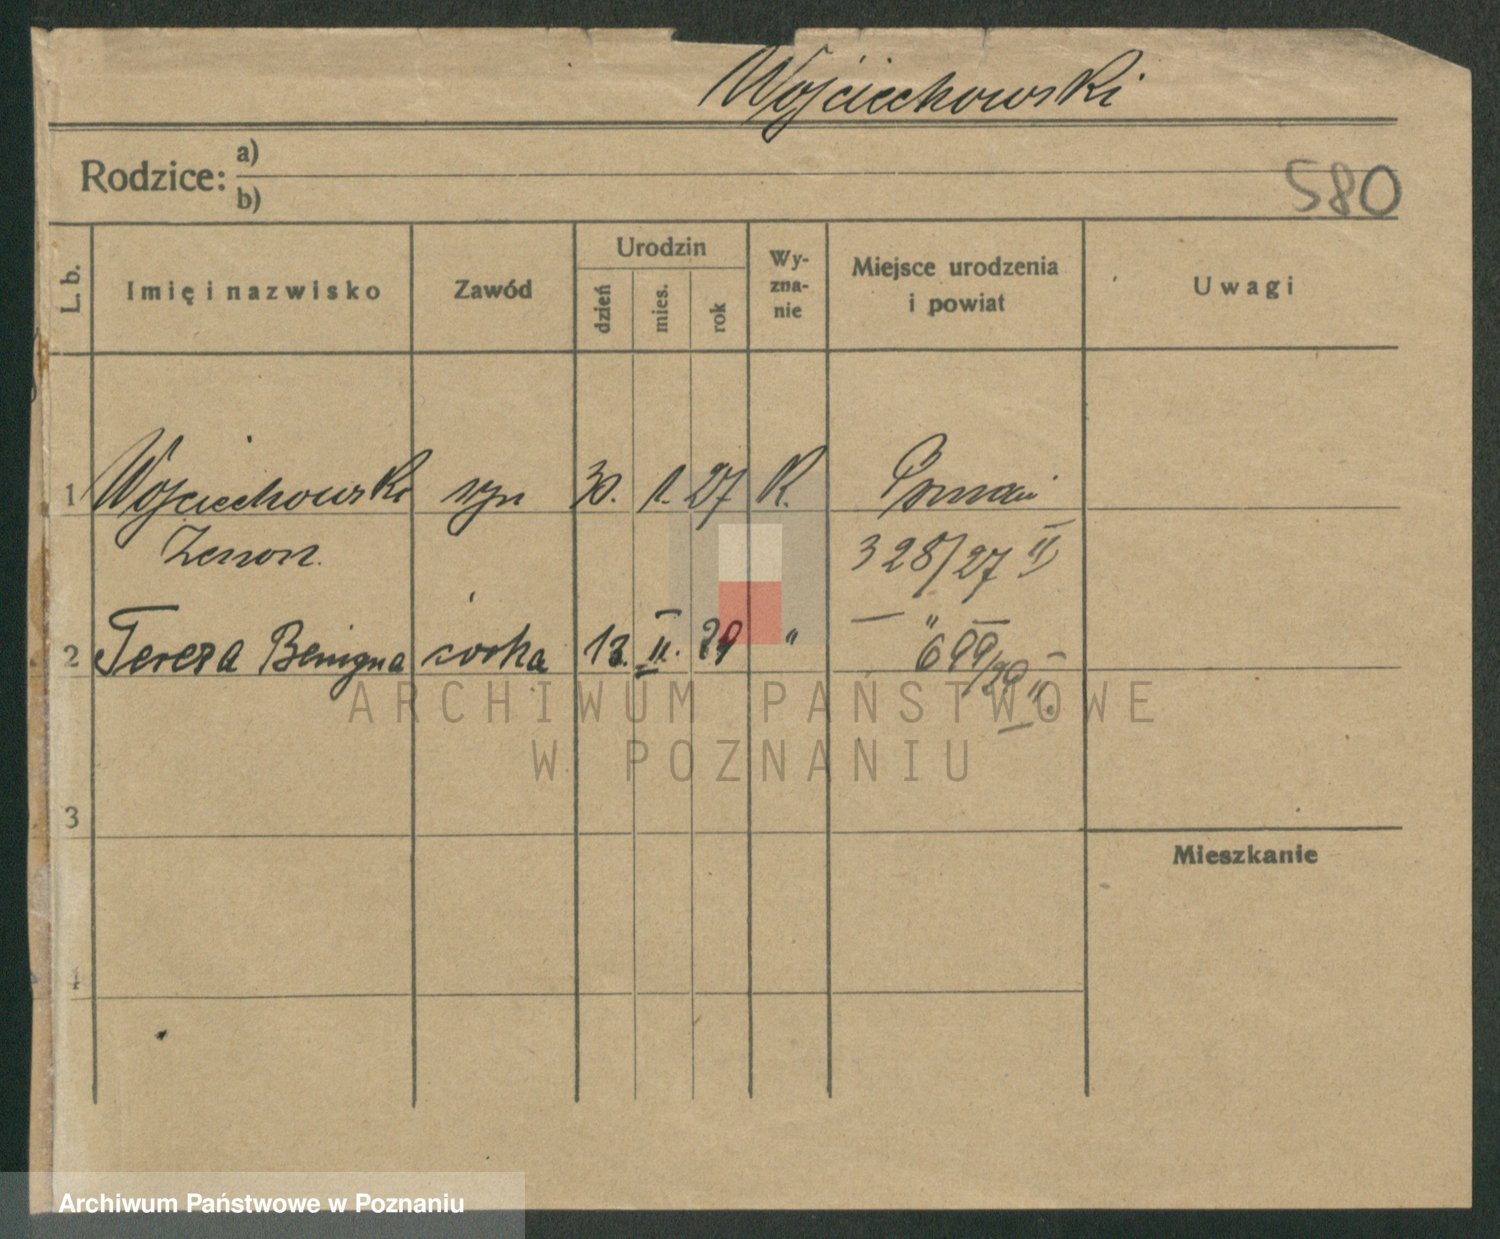 Wojciechowski
Rodzice: a)
b)
580
L. b. Imię i nazwisko Zawód Urodzin dzień mies. rok Wy-zna-nie Miejsce urodzenia i powiat Uwagi
1 Wojciechowski syn 30. 1. 27 R. Poznań
Zenon. 328/27 II
2 Teresa Benigna córka 13. II. 29 " — " —
699/29 II.
ARCHIWUM PAŃSTWOWE
W POZNANIU
3
Mieszkanie
4
Archiwum Państwowe w Poznaniu